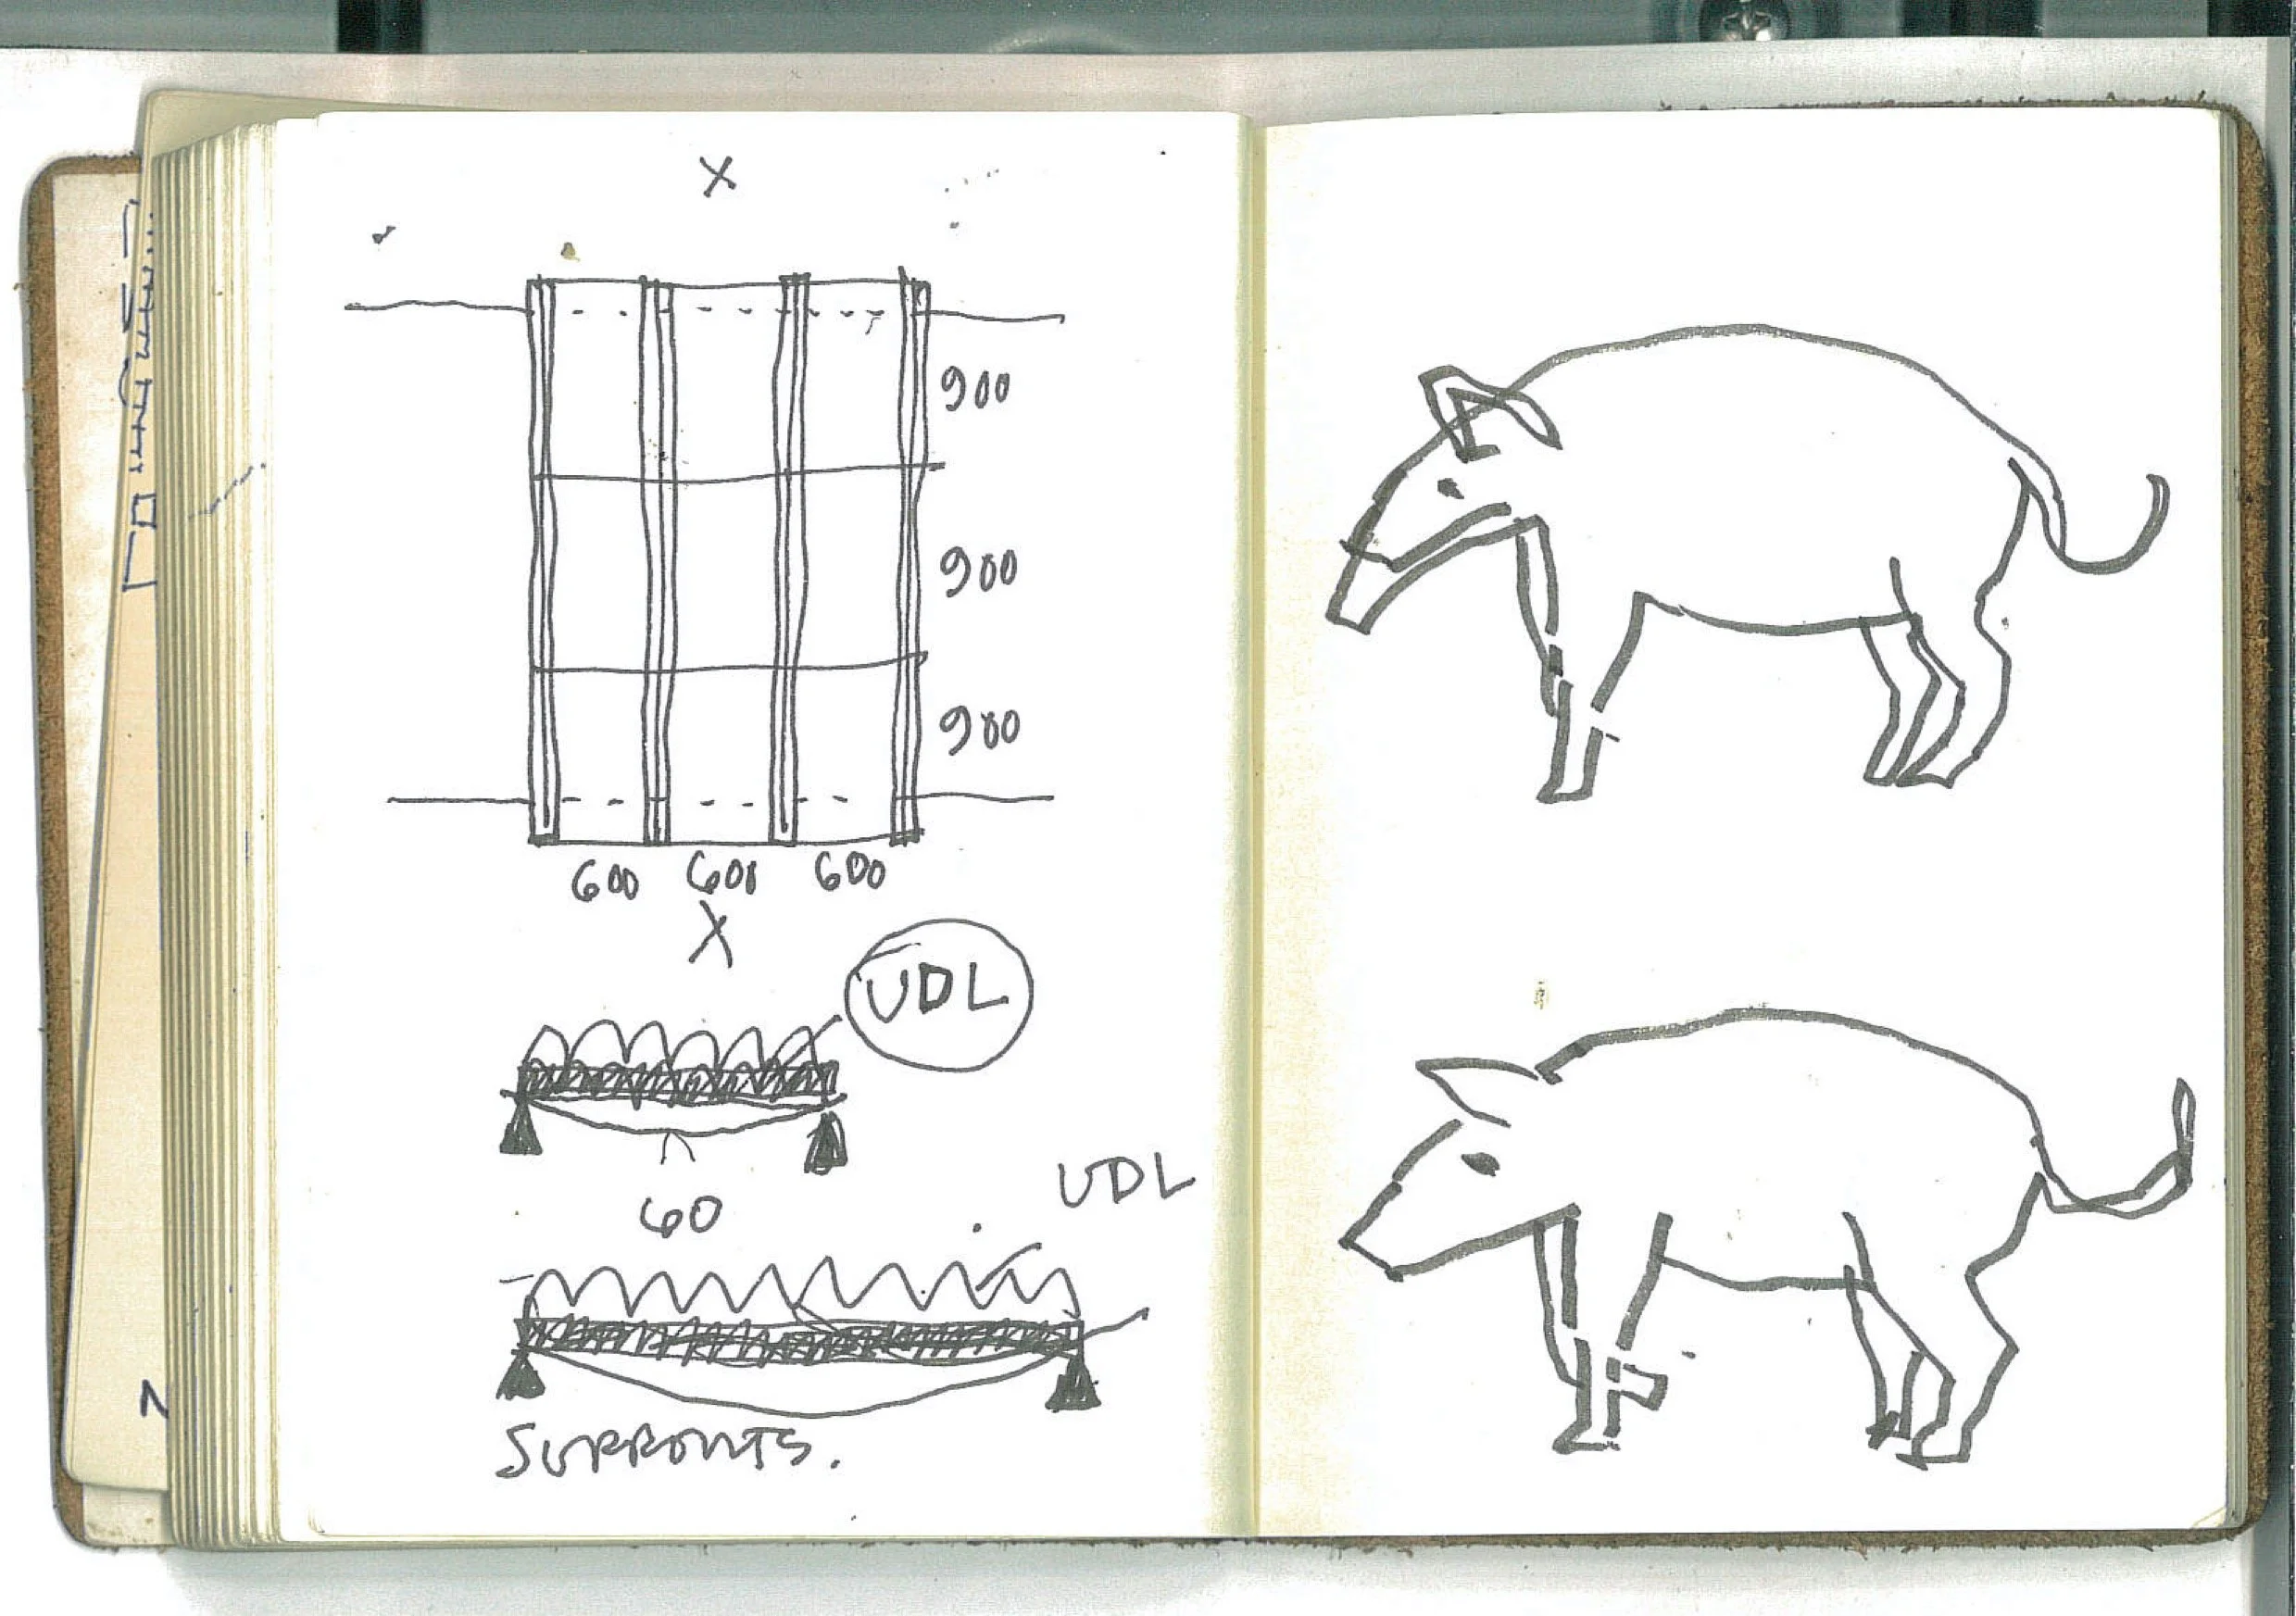 X
900
900
900
600 600 600
X
UDL
60
UDL
SUPPORTS.